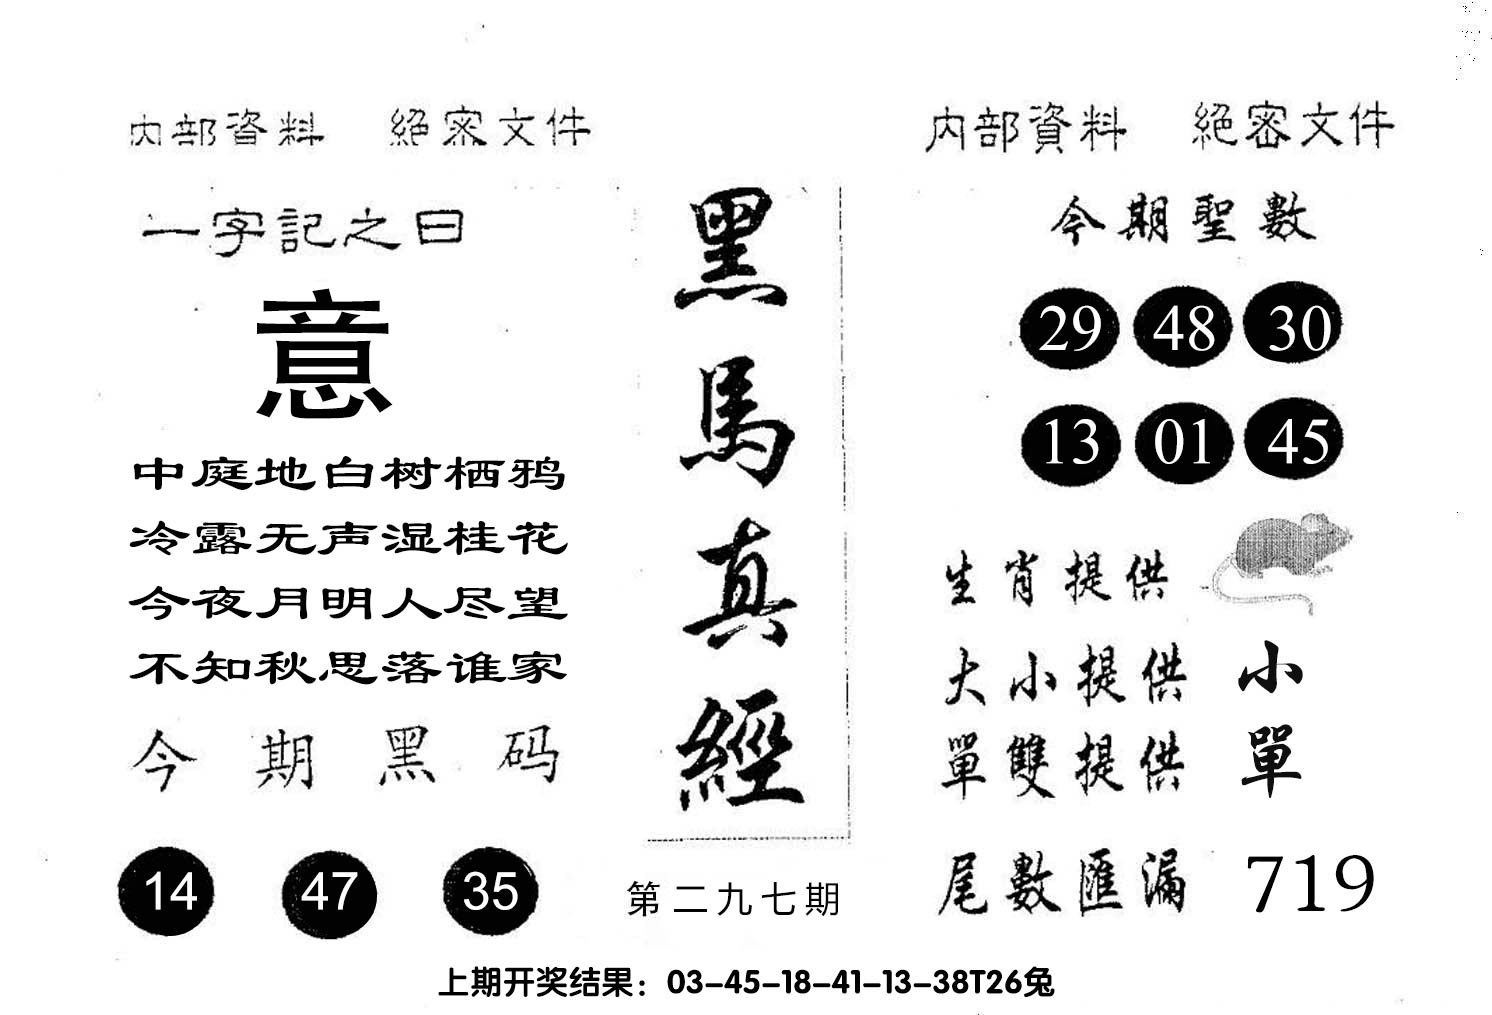 内部資料 絕密文件
一字記之曰
意
中庭地白树栖鸦
冷露无声湿桂花
今夜月明人尽望
不知秋思落谁家
今期黑码
14 47 35
黑馬真經
第二九七期
内部資料 絕密文件
今期聖數
29 48 30
13 01 45
生肖提供
大小提供 小
單雙提供 單
尾數匯漏 719
上期开奖结果：03-45-18-41-13-38T26兔